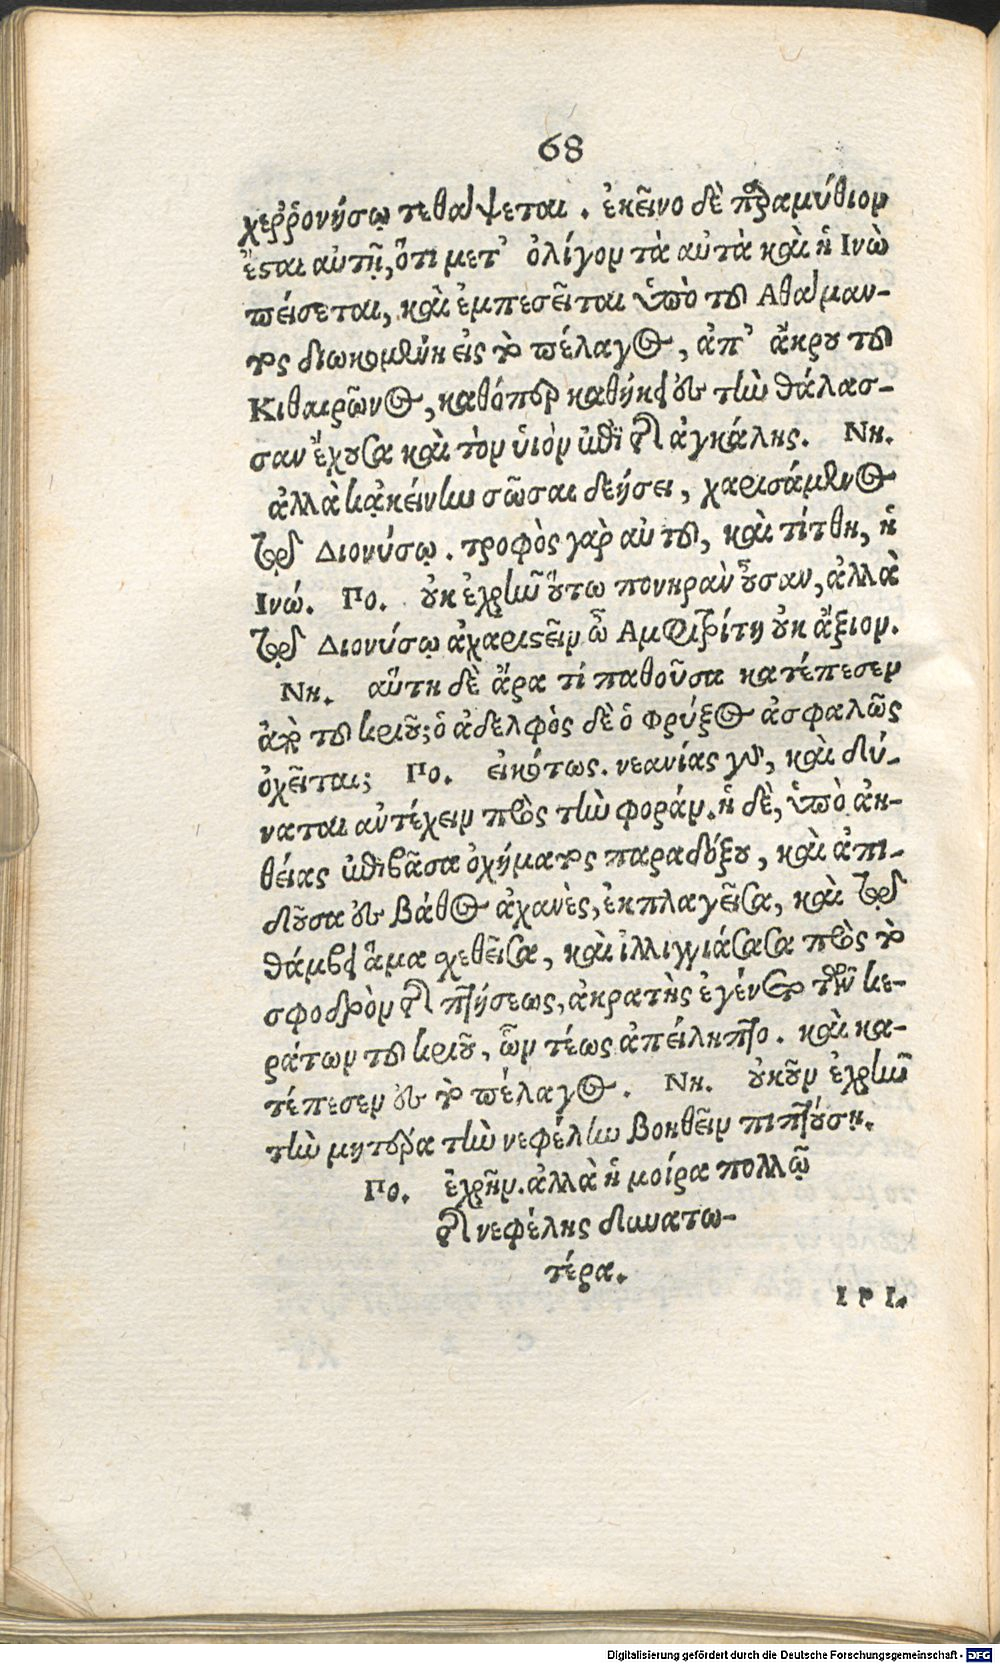 68
χερῤονήσῳ τεθάψεται. ἐκεῖνο δὲ παραμύθιον
ἔσαι αὐτῇ, ὅτι μετ’ ὀλίγον τὰ αὐτὰ καὶ ἡ Ινὼ
πείσεται, καὶ ἐμπεσεῖται ὑπὸ τοῦ Αθάμαν-
τος διωκομένη εἰς τὸ πέλαγος, ἀπ’ ἄκρου τοῦ
Κιθαιρῶνος, καθόπερ καθήκει ἐς τὴν θάλασ-
σαν ἔχουσα καὶ τὸν ὑιὸν ἐπὶ τῆς ἀγκάλης. Νη.
ἀλλὰ κᾀκείνην σῶσαι δεήσει, χαρισάμενος
τῷ Διονύσῳ. τροφὸς γὰρ αὐτοῦ, καὶ τίτθη, ἡ
Ινώ. Πο. οὐκ ἐχρῆν οὕτω πονηρὰν οὖσαν, ἀλλὰ
τῷ Διονύσῳ ἀχαριστεῖν ὦ Αμφιτρίτη οὐκ ἄξιον.
Νη. αὕτη δὲ ἄρα τί παθοῦσα κατέπεσεν
ἀπὸ τοῦ κριοῦ; ὁ ἀδελφὸς δὲ ὁ Φρύξος ἀσφαλῶς
ὀχεῖται; Πο. εἰκότως. νεανίας γὰρ, καὶ δύ-
ναται αὐτέχειν πρὸς τὴν φοράν. ἡ δὲ, ὑπὸ ἀη-
θείας ἐπιβᾶσα ὀχήματος παραδόξου, καὶ ἀπι-
δοῦσα ἐς βάθος ἀχανὲς, ἐκπλαγεῖσα, καὶ τῷ
θάμβει ἅμα σχεθεῖσα, καὶ ἰλλιγγιάσασα πρὸς τὸ
σφοδρὸν τῆς πτήσεως, ἀκρατὴς ἐγένετο τῶν κε-
ράτων τοῦ κριοῦ, ὧν τέως ἀπείληπτο. καὶ κα-
τέπεσεν ἐς τὸ πέλαγος. Νη. οὐκοῦν ἐχρῆν
τὴν μητέρα τὴν νεφέλην βοηθεῖν πιπτούσῃ.
Πο. ἐχρῆν. ἀλλὰ ἡ μοίρα πολλῷ
τῆς νεφέλης δυνατω-
τέρα.
ΙΡΙ.
Digitalisierung gefördert durch die Deutsche Forschungsgemeinschaft - DFG